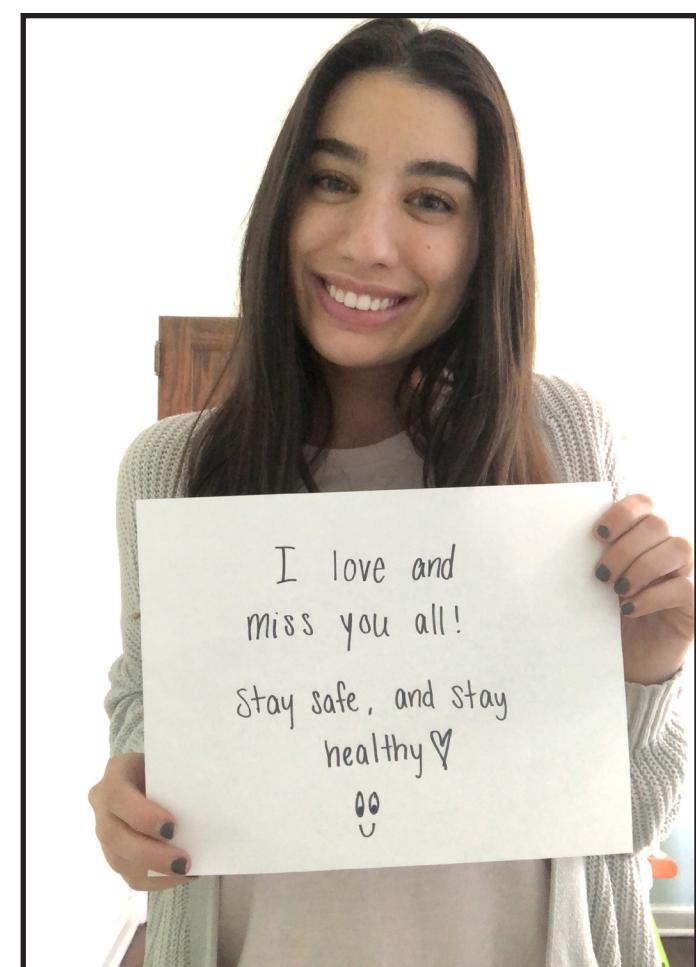 I love and
miss you all!
Stay safe, and stay
healthy♡